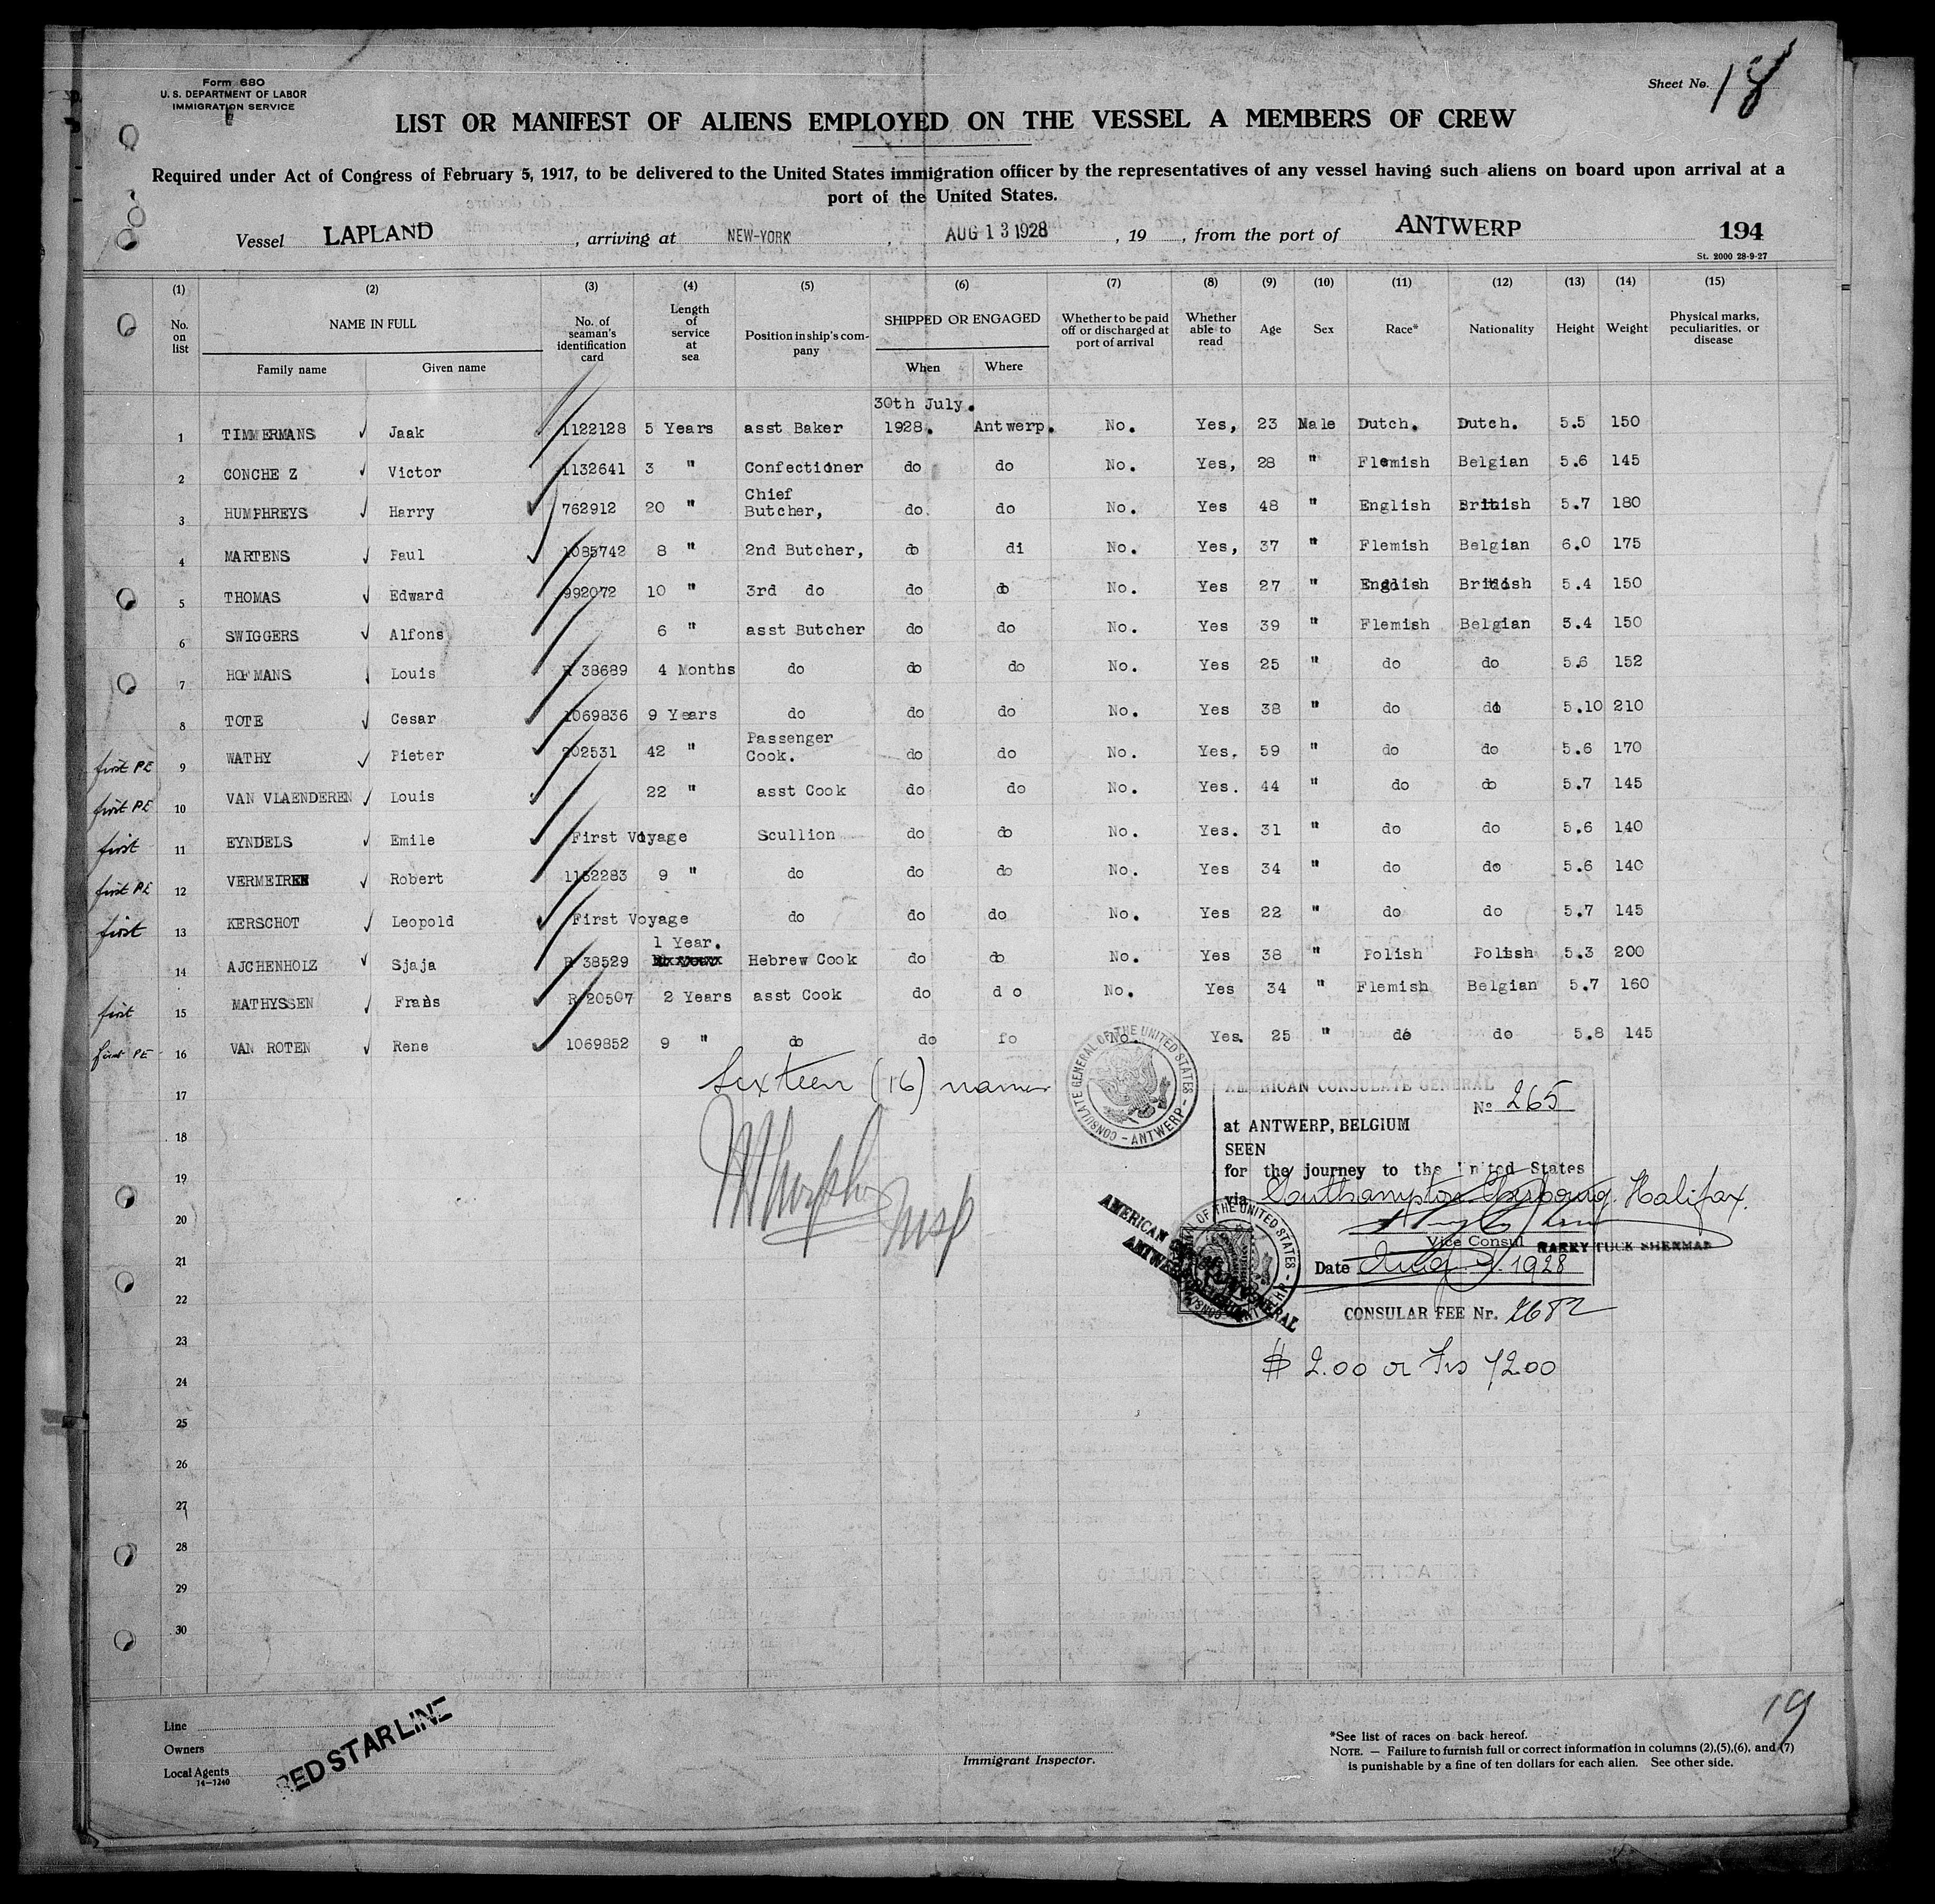 Form 680
U. S. DEPARTMENT OF LABOR
IMMIGRATION SERVICE
Sheet No. 18
LIST OR MANIFEST OF ALIENS EMPLOYED ON THE VESSEL A MEMBERS OF CREW
Required under Act of Congress of February 5, 1917, to be delivered to the United States immigration officer by the representatives of any vessel having such aliens on board upon arrival at a
port of the United States.
Vessel LAPLAND , arriving at NEW-YORK , AUG 13 1928 , 19 , from the port of ANTWERP 194
St. 2000 28-9-27
(1) (2) (3) (4) (5) (6) (7) (8) (9) (10) (11) (12) (13) (14) (15)
No. on list NAME IN FULL Family name Given name No. of seaman's identification card Length of service at sea Position in ship's company SHIPPED OR ENGAGED When Where Whether to be paid off or discharged at port of arrival Whether able to read Age Sex Race* Nationality Height Weight Physical marks, peculiarities, or disease
30th July.
1 TIMMERMANS Jaak 1122128 5 Years asst Baker 1928. Antwerp. No. Yes, 23 Male Dutch. Dutch. 5.5 150
2 CONCHE Z Victor 1132641 3 " Confectioner do do No. Yes, 28 " Flemish Belgian 5.6 145
3 HUMPHREYS Harry 762912 20 " Chief Butcher, do do No. Yes 48 " English British 5.7 180
4 MARTENS Paul 1085742 8 " 2nd Butcher, do di No. Yes, 37 " Flemish Belgian 6.0 175
5 THOMAS Edward 992072 10 " 3rd do do do No. Yes 27 " English British 5.4 150
6 SWIGGERS Alfons 6 " asst Butcher do do No. Yes 39 " Flemish Belgian 5.4 150
7 HOFMANS Louis R 38689 4 Months do do do No. Yes 25 " do do 5.6 152
8 TOTE Cesar 1069836 9 Years do do do No. Yes 38 " do do 5.10 210
first PE 9 WATHY Pieter 202531 42 " Passenger Cook. do do No. Yes. 59 " do do 5.6 170
first PE 10 VAN VLAENDEREN Louis 22 " asst Cook do do No. Yes. 44 " do do 5.7 145
first 11 EYNDELS Emile First Voyage Scullion do do No. Yes. 31 " do do 5.6 140
first PE 12 VERMEIREN Robert 1152283 9 " do do do No. Yes 34 " do do 5.6 140
first 13 KERSCHOT Leopold First Voyage do do do No. Yes 22 " do do 5.7 145
14 AJCHENHOLZ Sjaja R 38529 1 Year. Hebrew Cook do do No. Yes 38 " Polish Polish 5.3 200
first 15 MATHYSSEN Frans R 20507 2 Years asst Cook do d o No. Yes 34 " Flemish Belgian 5.7 160
first PE 16 VAN ROTEN Rene 1069852 9 " do do fo No. Yes. 25 " do do 5.8 145
Sixteen (16) names
17
18
19
20
21
22
23
24
25
26
27
28
29
30
CONSULATE GENERAL OF THE UNITED STATES - ANTWERP -
AMERICAN CONSULATE GENERAL
No 265
at ANTWERP, BELGIUM
SEEN
for the journey to the United States
via Southampton Cherbourg Halifax.
Vice Consul HARRY TUCK SHERMAN
Date Aug 1928
AMERICAN GENERAL
CONSULAR FEE Nr. 2682
$ 2.00 or Frs 72.00
Line
Owners
Local Agents
14-1240
RED STAR LINE
Immigrant Inspector.
19
*See list of races on back hereof.
NOTE. — Failure to furnish full or correct information in columns (2),(5),(6), and (7)
is punishable by a fine of ten dollars for each alien. See other side.